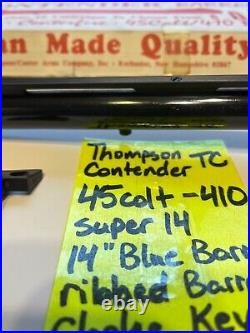 CONTENDER
an Made Quality
Thompson/Center Arms Company, Inc. - Rochester, New Hampshire 03867
Thompson TC
Contender
45colt-410
super 14
14" Blue Barr
ribbed Barr
Choke Key